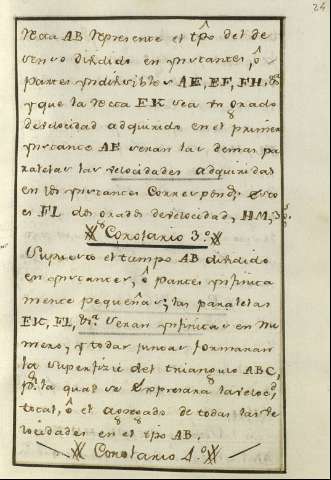 24
recta AB represente el tpo del des
censo dibidido en instantes, ô
partes indivisibles AE, EF, FH, &a
y que la recta EK sea un grado
develocidad adquirido en el primer
instante AE seran las demas pa
ralelas las velocidades adquiridas
en los instantes Correspond.s esto
es FL dos grados develocidad, HM, 3, &
Corolario 3.o
Supuesto el tiempo AB dibidido
en instantes, ô partes infinita
mente pequeñas; las paralelas
EK, FL, &a seran infinitas en nu
mero, y todas juntas formaran
la superfizie del triangulo ABC,
pr la qual se Expresara la veloc.d
total, ô el agregado de todas las ve
locidades en el tpo AB.
Corolario 4.o